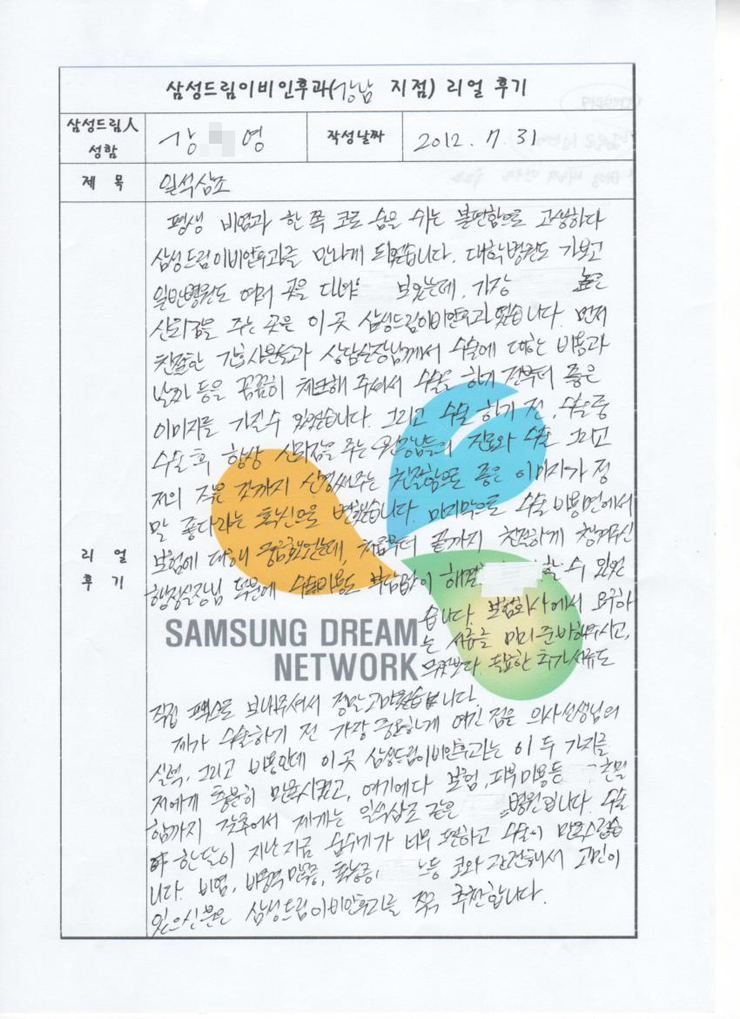 삼성드림이비인후과(강남 지점) 리얼 후기
삼성드림人
성함
강 영
작성날짜
2012. 7. 31
제 목
일석삼조
리 얼
후 기
평생 비염과 한 쪽 코로 숨을 쉬는 불편함으로 고생하다
삼성드림이비인후과를 만나게 되었습니다. 대학병원도 가보고
일반병원도 여러 곳을 다녀 보았는데, 가장 높은
신뢰감을 주는 곳은 이 곳 삼성드림이비인후과였습니다. 먼저
친절한 간호사분들과 상담실장님께서 수술에 대한 비용과
날짜 등을 꼼꼼히 체크해 주셔서 수술을 하기 전부터 좋은
이미지를 가질 수 있었습니다. 그리고 수술 하기 전, 수술 중
수술 후 항상 신뢰감을 주는 원장님들의 진료와 수술 그리고
저의 작은 것까지 신경써주는 친절함으로 좋은 이미지가 정
말 좋다라는 확신으로 변했습니다. 마지막으로 수술 비용면에서
보험에 대해 궁금했었는데, 처음부터 끝까지 친절하게 챙겨주신
행정실장님 덕분에 수술비용도 부담없이 해결 할 수 있었
습니다. 보험회사에서 요구하
는 서류를 미리 준비해주시고,
무엇보다 필요한 추가서류도
SAMSUNG DREAM
NETWORK
직접 팩스로 보내주셔서 정말 고마웠습니다.
제가 수술하기 전 가장 중요하게 여긴 점은 의사선생님의
실력, 그리고 비용인데 이 곳 삼성드림이비인후과는 이 두 가지를
저에게 충분히 만족시켰고, 여기에다 보험, 피부미용등 친밀
함까지 갖추어서 제게는 일석삼조 같은 병원입니다. 수술
후 한달이 지난 지금 숨쉬기가 너무 편하고 수술이 만족스럽습
니다. 비염, 비중격만곡증, 축농증, 등 코와 관련해서 고민이
있으신분은 삼성드림이비인후과를 적극 추천합니다.